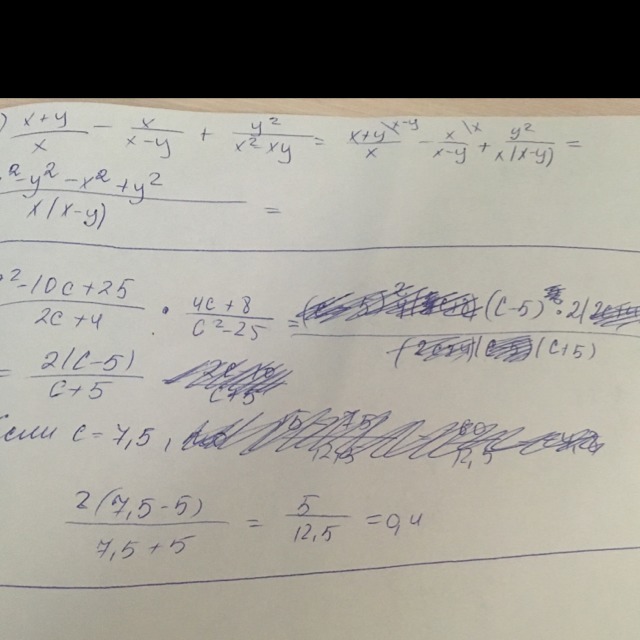 ) (x+y)/x - x/(x-y) + y²/(x² xy) = (x+y)/x \x-y - x/(x-y) \x + y²/(x(x-y)) =
²-y²-x²+y²/(x(x-y)) =
²-10c+25/(2c+4) · (4c+8)/(c²-25) = (c-5) · 2/(c+5)
= 2(c-5)/(c+5)
если c=7,5,
2(7,5-5)/(7,5+5) = 5/12,5 = 0,4